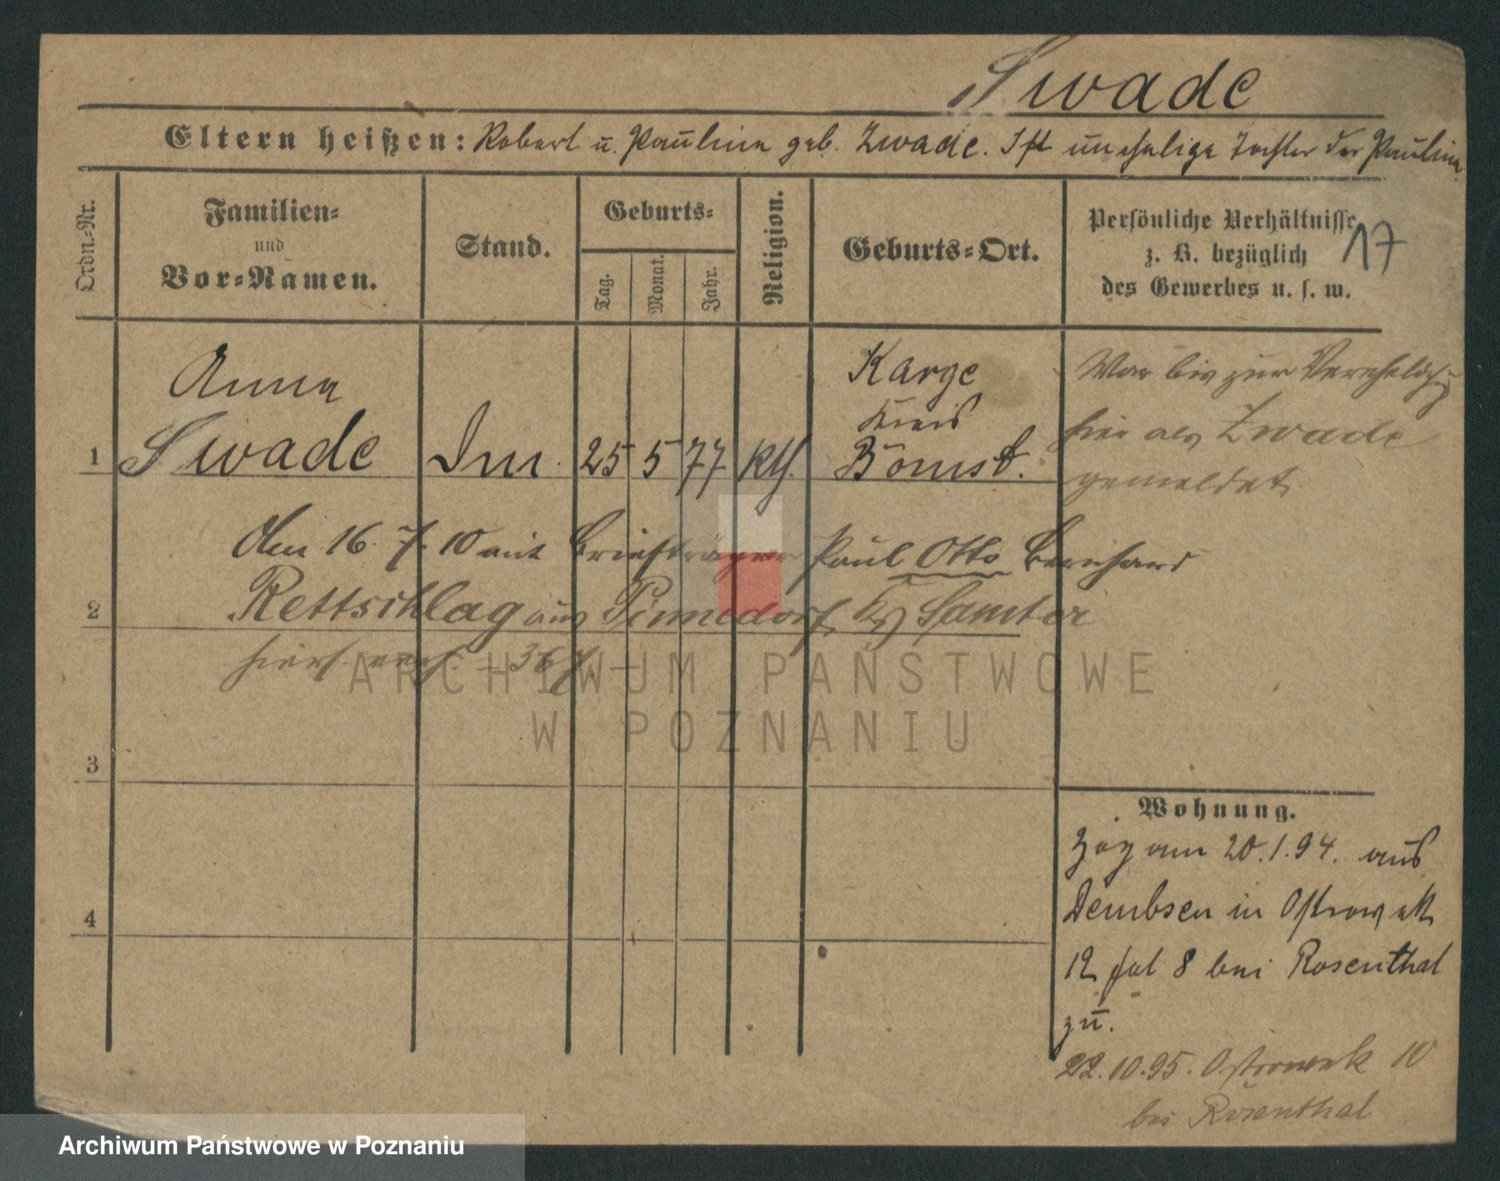 Swade
Eltern heißen: Robert u. Paulina geb. Zwade. Ist unehelige Tochter der Paulina.
Ordn.-Nr.
Familien-
und
Vor-Namen.
Stand.
Geburts-
Tag.
Monat.
Jahr.
Religion.
Geburts-Ort.
Persönliche Verhältnisse
z. B. bezüglich
des Gewerbes u. s. w.
17
Anna
Karge
Kreis
1 Swade 25 5 77 kth. Bomst.
War bis zur Verehelichg
hier als Zwade
gemeldet
Am 16. 7. 10 mit Briefträger Paul Otto Bernhard
2 Rettschlag aus Pinnedorf, Kr Samter
hiers. 367
3
4
Wohnung.
Zog am 20.1.94. aus
Dembsen in Ostrowek
12 bei Rosenthal
zu.
22.10.95. Ostrowek 10
bei Rosenthal
ARCHIWUM PAŃSTWOWE
W POZNANIU
Archiwum Państwowe w Poznaniu